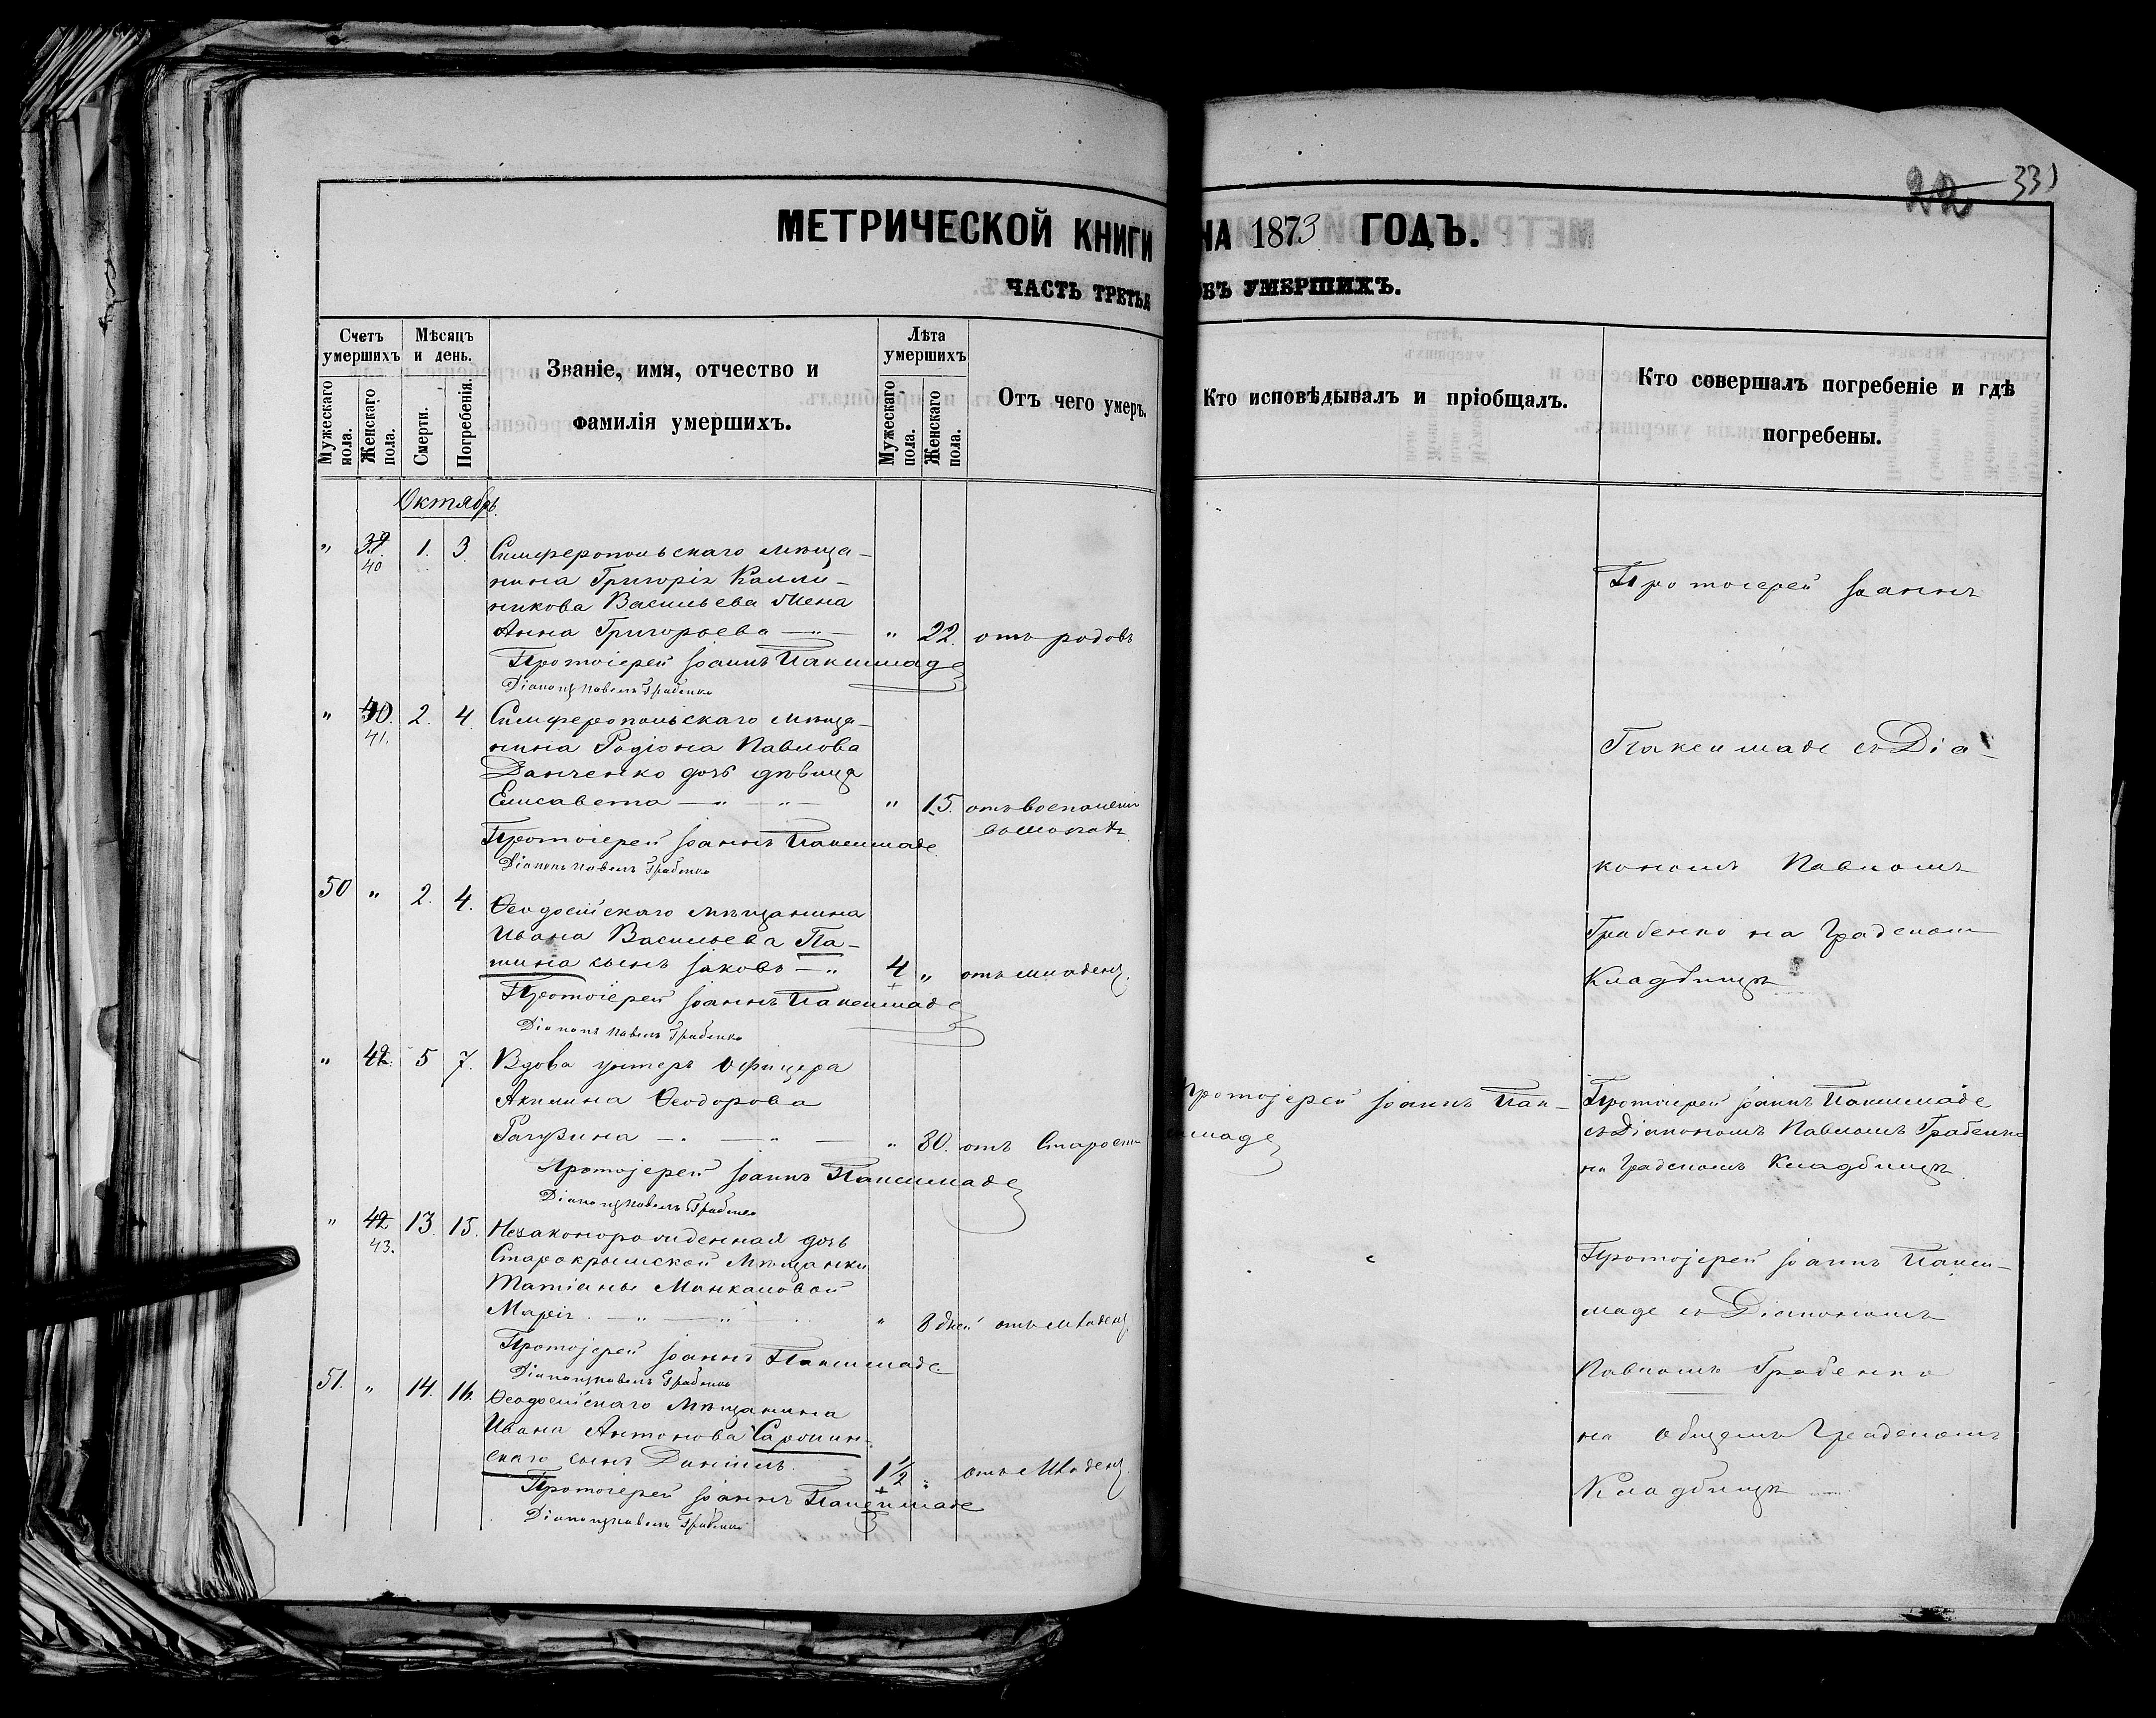 22 331
МЕТРИЧЕСКОЙ КНИГИ НА 1873 ГОДЪ.
ЧАСТЬ ТРЕТЬЯ ОБЪ УМЕРШИХЪ.
Счетъ умершихъ
Мужескаго пола.
Женскаго пола.
Мѣсяцъ и день.
Смерти.
Погребенія.
Званіе, имя, отчество и
фамилія умершихъ.
Лѣта умершихъ
Мужескаго пола.
Женскаго пола.
Отъ чего умеръ.
Кто исповѣдывалъ и пріобщалъ.
Кто совершалъ погребеніе и гдѣ
погребены.
Октябрь.
" 39. 40 1. 3. Симферопольскаго мѣща-
нина Григорія Калли-
никова Васильева жена
Анна Григорьева — " — " 22. отъ родовъ
Протоіерей Іоаннъ Паксимаде
Діаконъ Павелъ Грабенко
" 40. 41. 2. 4. Симферопольскаго мѣща-
нина Родіона Павлова
Данченко дочь дѣвица
Елисавета — " — " — " 15. отъ воспаленія
Протоіерей Іоаннъ Паксимаде
Діаконъ Павелъ Грабенко
50 " 2. 4. Ѳеодосійскаго мѣщанина
Ивана Васильева Па-
шина сынъ Іаковъ — " 4 " отъ младенч.
Протоіерей Іоаннъ Паксимаде
Діаконъ Павелъ Грабенко
" 42. 5 7. Вдова унтеръ Офицера
Акилина Ѳеодорова
— " — " — " 80. отъ Старости
Протоіерей Іоаннъ Паксимаде
Діаконъ Павелъ Грабенко
" 42 43. 13. 15. Незаконорожденная дочь
Старокрымской Мѣщанки
Татіаны Манкаловой
Марія. — " — " " 8 дней отъ младенч.
Протоіерей Іоаннъ Паксимаде
Діаконъ Павелъ Грабенко
51. " 14. 16. Ѳеодосійскаго Мѣщанина
Ивана Антонова Сарчин-
скаго сынъ Даніилъ. 1 1/2 " отъ Младенч.
Протоіерей Іоаннъ Паксимаде
Діаконъ Павелъ Грабенко
Протоіерей Іоаннъ
Паксимаде съ Діа-
кономъ Павломъ
Грабенко на Градском
Кладбищѣ
Протоіерей Іоаннъ Пак-
симаде
Протоіерей Іоаннъ Паксимаде
съ Діакономъ Павломъ Грабенко
на Градскомъ Кладбищѣ.
Протоіерей Іоаннъ Пакси-
маде съ Діакономъ
Павломъ Грабенко
на Общемъ Градскомъ
Кладбищѣ